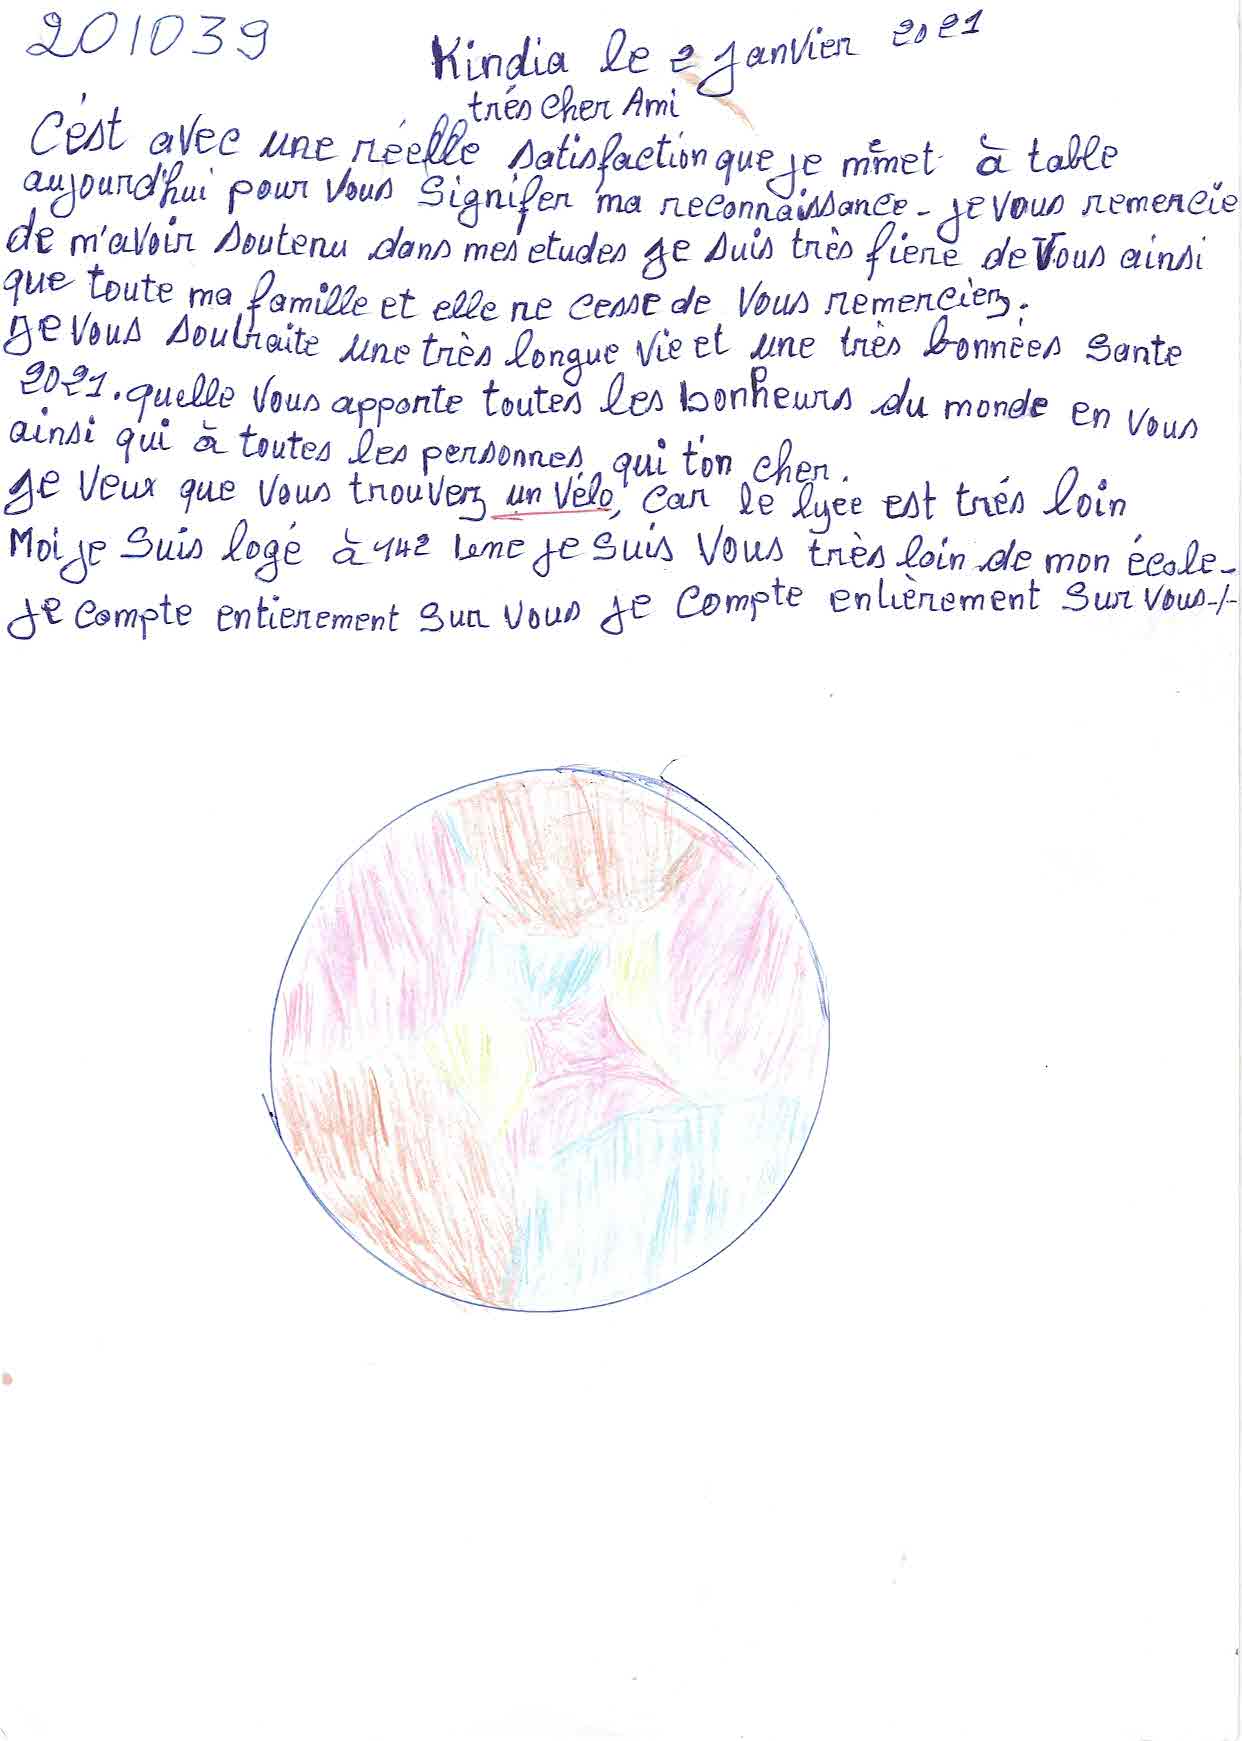 201039
Kindia le 2 janvier 2021
trés cher Ami
C'est avec une réelle satisfaction que je m'met à table
aujourd'hui pour vous signifer ma reconnaissance - je vous remercie
de m'avoir soutenu dans mes etudes je suis très fière de vous ainsi
que toute ma famille et elle ne cesse de vous remerciez.
je vous souhaite une très longue vie et une très bonnées sante
2021. quelle vous apporte toutes les bonheurs du monde en vous
ainsi qui à toutes les personnes qui t'on cher.
je veux que vous trouverz un vélo, car le lycée est trés loin
Moi je suis logé à 142 je suis vous très loin de mon école -
je compte entierement sur vous je compte entièrement sur vous-/-